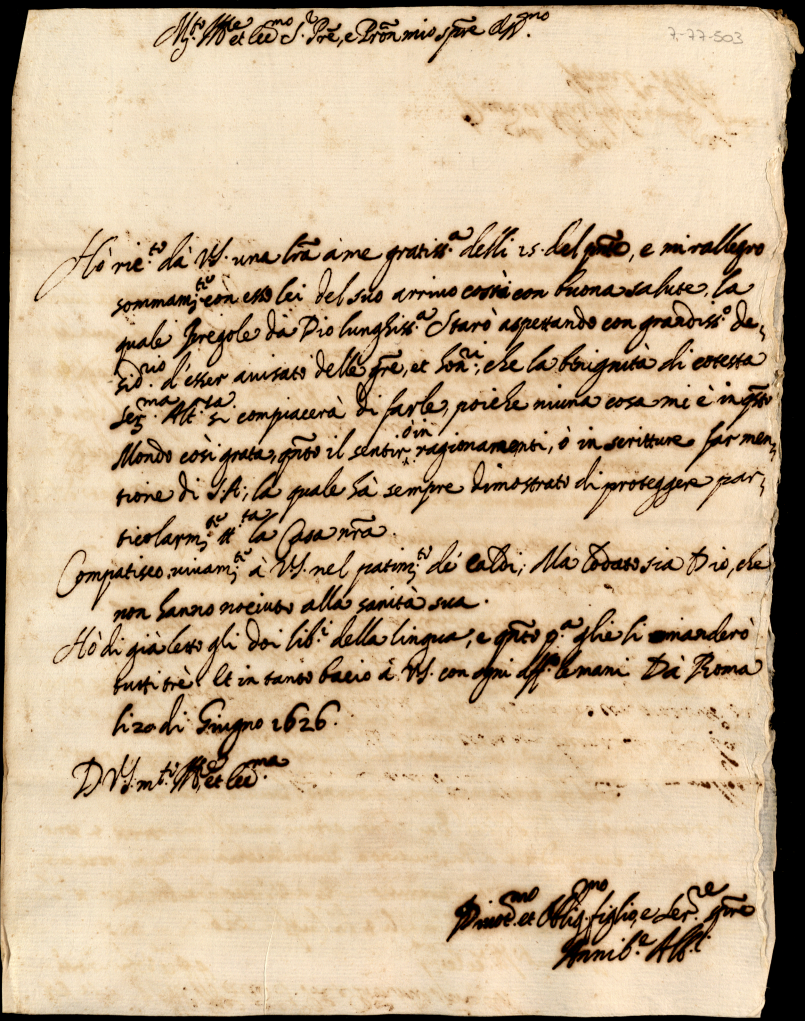 M.to Ill.re et Ecc.mo S.r P.re, e P.ron mio sp.re Oss.mo
7-77-503
Hò ric.to dà V.S. una l'ra à me gratiss.a delli 15. del p'nte, e mi rallegro
sommam.te con esso lei del suo arrivo costà con buona salute, la
quale pregole dà Dio lunghiss.a Starò aspettando con grandiss.o de-
sid.rio d'esser avisato delle gr'e, et hon.ri, che la b'nignità di cotesta
Ser.ma Alt.za si compiacerà di farle, poiche niuna cosa mi è in q'sto
Mondo così grata, q'nto il sentir ò in ragionamenti, ò in scritture far men-
tione di S.A., la quale hà sempre dimostrato di proteggere par-
ticolarm.te tt.ta la Casa n'ra.
Compatisco vivam.te à V.S. nel patim.to de' caldi; Mà lodato sia Dio, che
non hanno nociuto alla sanità sua.
Hò di già letto gli doi lib.i della lingua, e q'nto p.a glie li manderò
tutti trè. Et in tanto bacio à V.S. con ogni aff.o le mani Dà Roma
li 20 di Giugno 1626.
D. V.S. m.to Ill.re et Ecc.ma
Divot.mo et Oblig.mo figlio, e Ser.re sp're
Annib.e Alb.i